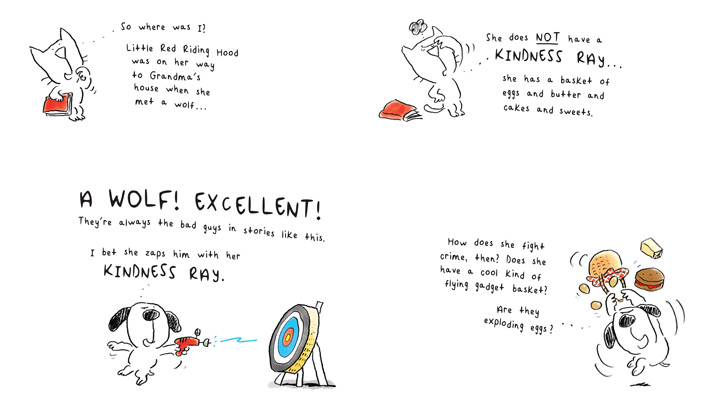 So where was I?
Little Red Riding Hood
was on her way
to Grandma's
house when she
met a wolf...
A WOLF! EXCELLENT!
They're always the bad guys in stories like this.
I bet she zaps him with her
KINDNESS RAY.
She does NOT have a
KINDNESS RAY...
she has a basket of
eggs and butter and
cakes and sweets.
How does she fight
crime, then? Does she
have a cool kind of
flying gadget basket?
Are they
exploding eggs?